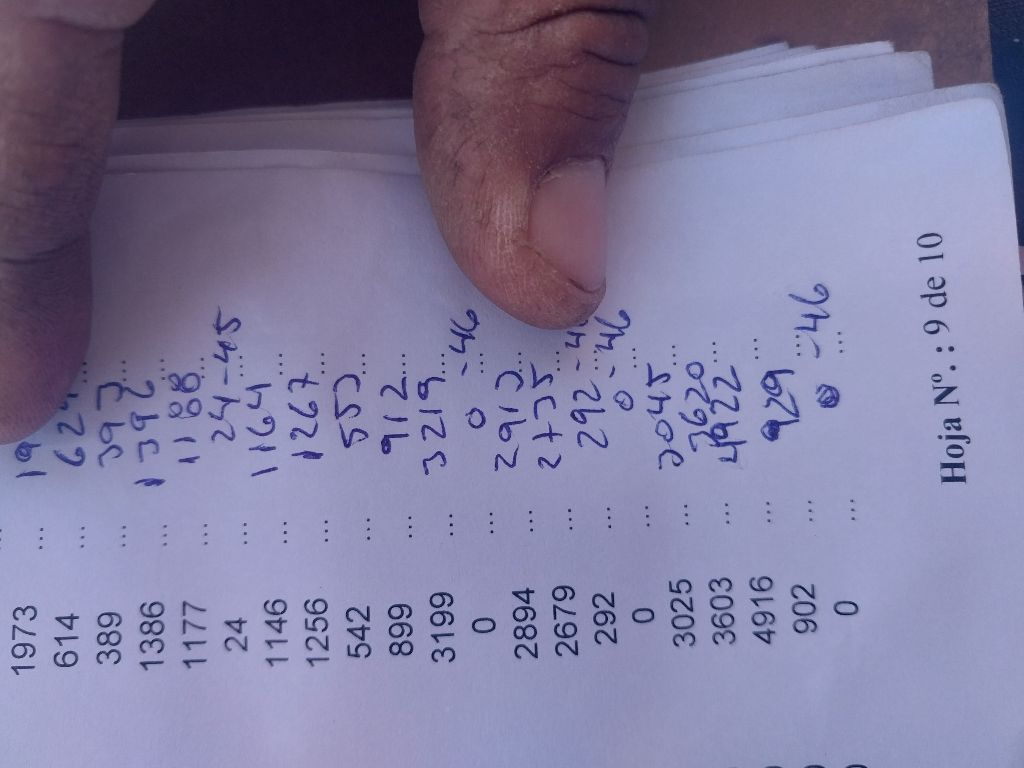 1973 ... 19
614 ... 624 ...
389 ... 397 ...
1386 ... 1392 ...
1177 ... 1188 ...
24 ... 24-45 ...
1146 ... 1164 ...
1256 ... 1267 ...
542 ... 557 ...
899 ... 912 ...
3199 ... 3219 ...
0 ... 0 -46 ...
2894 ... 2917 ...
2679 ... 2735 ...
292 ... 292 - ...
0 ... 0 -46 ...
3025 ... 3045 ...
3603 ... 3620 ...
4916 ... 4922 ...
902 ... 929 ...
0 ... 0 -46 ...
Hoja Nº. : 9 de 10